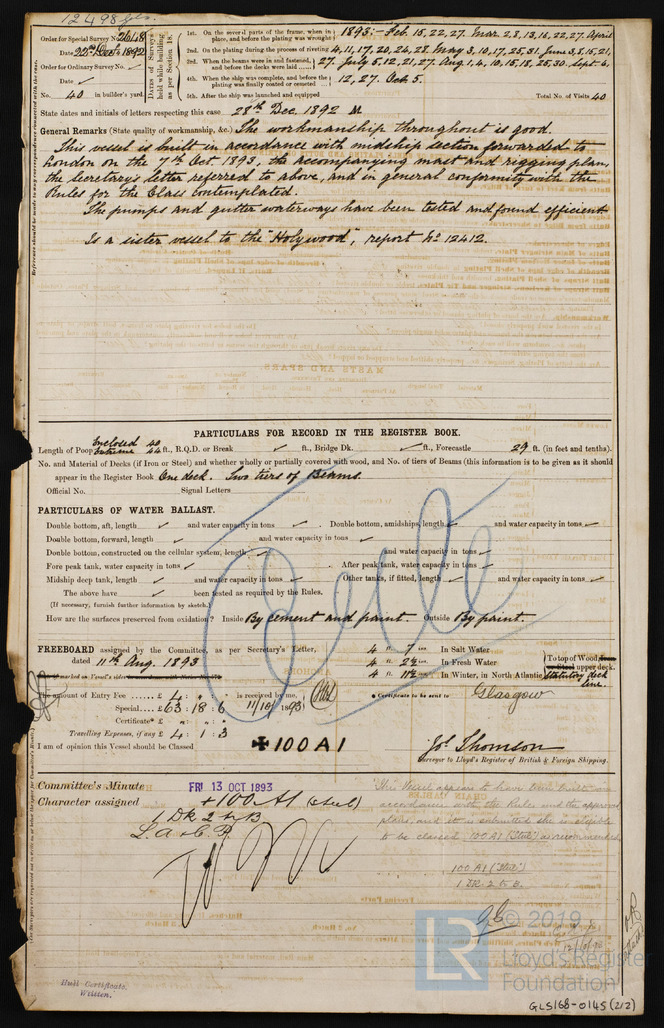 12498 gls.
Order for Special Survey No. 2648
Date 22nd Decr 1892
Order for Ordinary Survey No. ✓
Date ✓
No. 40 in builder's yard.
Dates of Surveys held while building as per Section 18.
1st. On the several parts of the frame, when in place, and before the plating was wrought 1893:- Feb. 15, 22, 27. Mar. 2, 8, 13, 16, 22, 27. April
2nd. On the plating during the process of riveting 4, 11, 17, 20, 24, 28. May 3, 10, 17, 25, 31. June 3, 8, 15, 21,
3rd. When the beams were in and fastened, and before the decks were laid 27. July 5, 12, 21, 27. Aug 1, 4, 10, 15, 18, 25, 30. Sept. 6,
4th. When the ship was complete, and before the plating was finally coated or cemented 12, 27. Oct 5.
5th. After the ship was launched and equipped
Total No. of Visits 40
State dates and initials of letters respecting this case 28th Dec. 1892 M
General Remarks (State quality of workmanship, &c.) The workmanship throughout is good.
This vessel is built in accordance with midship section forwarded to
London on the 7th Oct 1893, the accompanying mast and rigging plan,
the Secretary's letter referred to above, and in general conformity with the
Rules for the Class contemplated.
The pumps and gutter waterways have been tested and found efficient.
Is a sister vessel to the "Holywood", report No 12412.
PARTICULARS FOR RECORD IN THE REGISTER BOOK.
Length of Poop Enclosed 40 Extreme 44 ft., R.Q.D. or Break ✓ ft., Bridge Dk. ✓ ft., Forecastle 29 ft. (in feet and tenths).
No. and Material of Decks (if Iron or Steel) and whether wholly or partially covered with wood, and No. of tiers of Beams (this information is to be given as it should
appear in the Register Book One deck. Two tiers of Beams.
Official No. Signal Letters
PARTICULARS OF WATER BALLAST.
Double bottom, aft, length ✓ and water capacity in tons ✓. Double bottom, amidships, length ✓ and water capacity in tons ✓
Double bottom, forward, length ✓ and water capacity in tons ✓
Double bottom, constructed on the cellular system, length ✓ and water capacity in tons ✓
Fore peak tank, water capacity in tons ✓. After peak tank, water capacity in tons ✓
Midship deep tank, length ✓ and water capacity in tons ✓ Other tanks, if fitted, length ✓ and water capacity in tons ✓
The above have ✓ been tested as required by the Rules.
(If necessary, furnish further information by sketch.)
How are the surfaces preserved from oxidation? Inside By cement and paint. Outside By paint.
FREEBOARD assigned by the Committee, as per Secretary's Letter, 4 ft. 7 in. In Salt Water
dated 11th Aug. 1893 4 ft. 2½ in. In Fresh Water
4 ft. 11½ in. In Winter, in North Atlantic
To top of Wood, Iron or Steel upper deck.
Statutory deck line.
The amount of Entry Fee £ 4 : " : " is received by me,
Special £ 63 : 18 : 6 11/10/1893
Certificate £ " : " : "
Travelling Expenses, if any £ 4 : 1 : 3
Certificate to be sent to Glasgow
I am of opinion this Vessel should be Classed ✠ 100 A1
Jos. Thomson
Surveyor to Lloyd's Register of British & Foreign Shipping.
Committee's Minute FRI 13 OCT 1893
Character assigned + 100 A1 (steel)
1 Dk 2 tr B
L. A & C. P.
This Vessel appears to have been built in
accordance with the Rules and the approved
plans, and it is submitted she is eligible
to be classed 100 A1 (Steel) as recommended.
100 A1 (Steel)
1 DK. 2 tr B.
© 2019
Lloyd's Register
Foundation
LR
Hull Certificate.
Written.
GLS168-0145 (2/2)